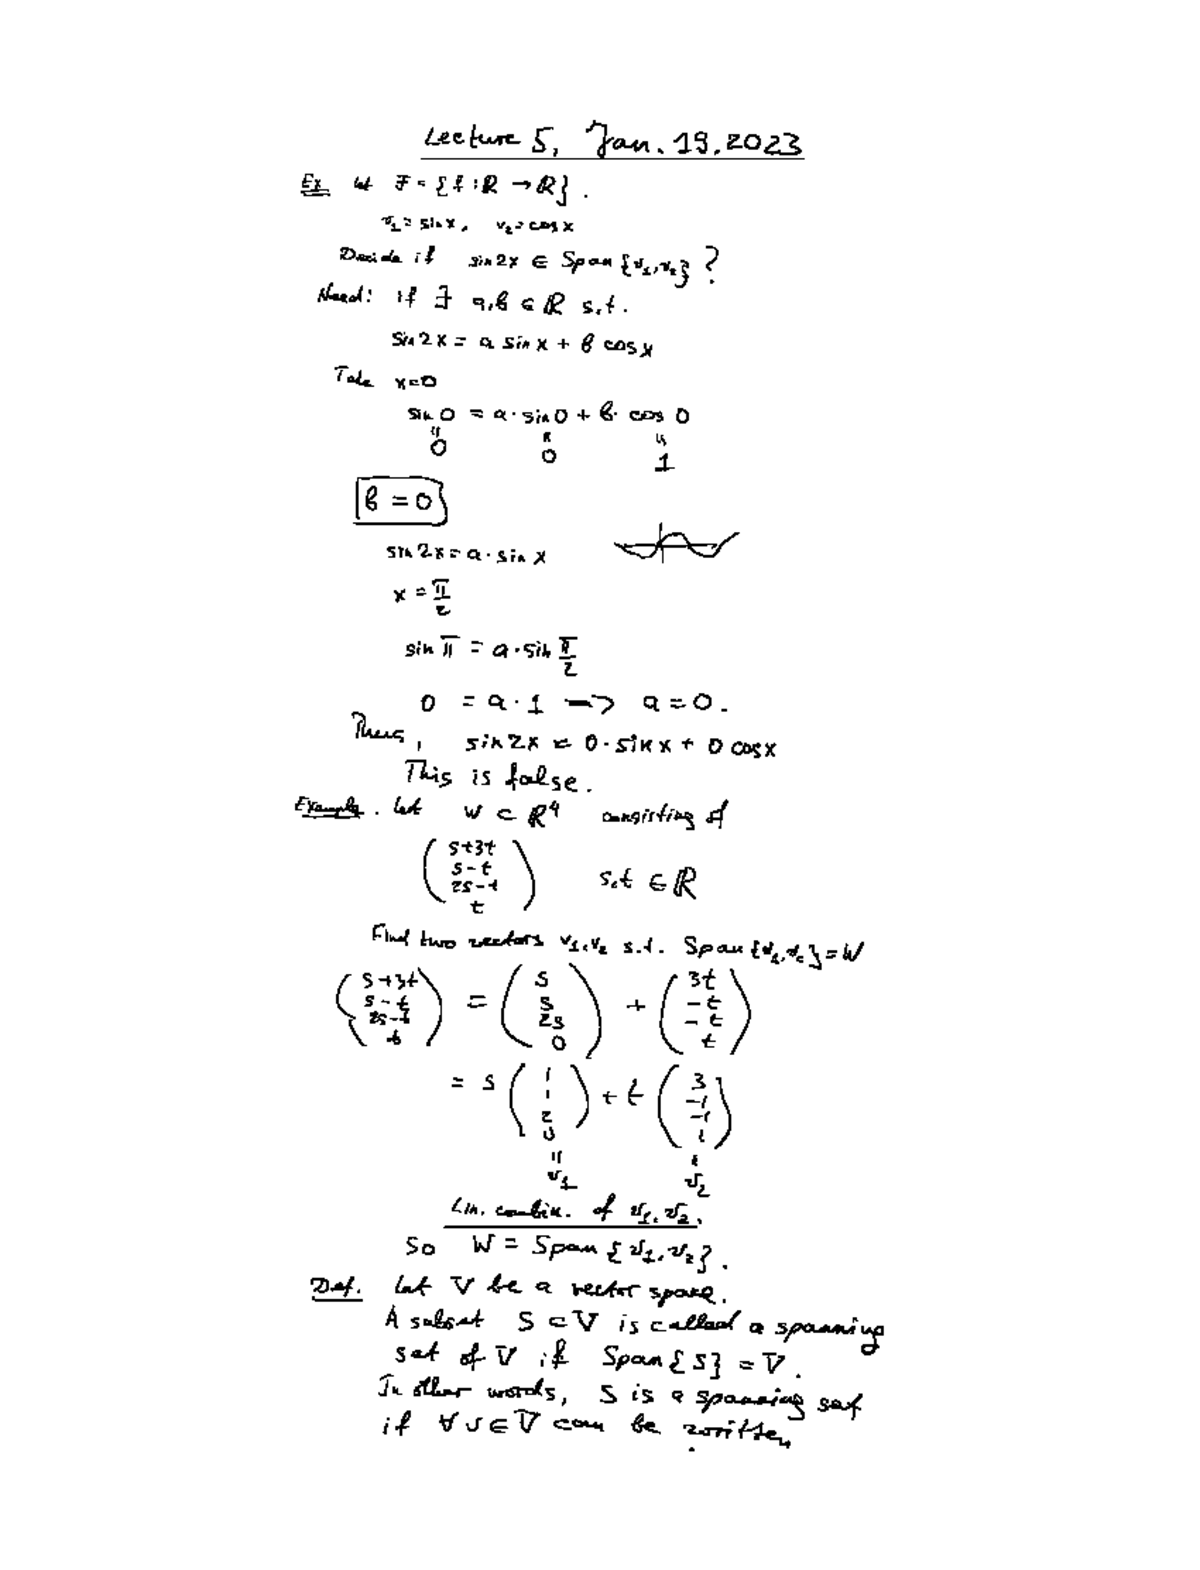 Lecture 5, Jan. 19. 2023
Ex let F = {f : ℝ → ℝ}.
v₁ = sin x, v₂ = cos x
Decide if sin 2x ∈ Span {v₁, v₂} ?
Need: if ∃ a, b ∈ ℝ s.t.
sin 2x = a sin x + b cos x
Take x = 0
sin 0 = a · sin 0 + b · cos 0
0 0 1
b = 0
sin 2x = a · sin x
x = π/2
sin π = a · sin π/2
0 = a · 1 —> a = 0.
Thus, sin 2x = 0 · sin x + 0 cos x
This is false.
Example. Let W ⊂ ℝ⁴ consisting of
( s+3t
s-t
2s-t
t ) s,t ∈ ℝ
Find two vectors v₁, v₂ s.t. Span {v₁, v₂} = W
( s+3t ) = ( s ) + ( 3t )
( s-t ) ( s ) ( -t )
( 2s-t ) ( 2s ) ( -t )
( t ) ( 0 ) ( t )
= s ( 1 ) + t ( 3 )
( 1 ) ( -1 )
( 2 ) ( -1 )
( 0 ) ( 1 )
v₁ v₂
Lin. combin. of v₁, v₂.
So W = Span {v₁, v₂}.
Def. Let V be a vector space.
A subset S ⊂ V is called a spanning
set of V if Span {S} = V.
In other words, S is a spanning set
if ∀ v ∈ V can be written